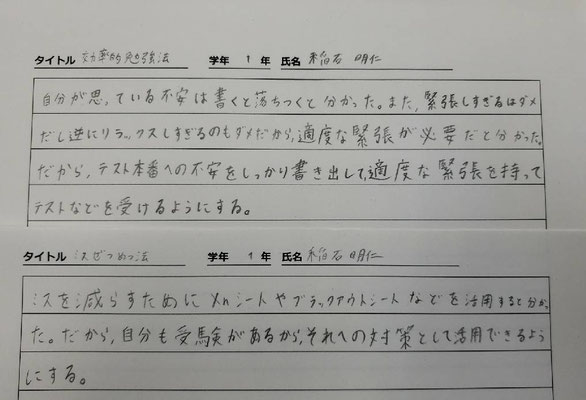 タイトル 効率的勉強法 学年 1 年 氏名 稲石 明仁
自分が思っている不安は書くと落ちつくと分かった。また、緊張しすぎるはダメ
だし逆にリラックスしすぎるのもダメだから、適度な緊張が必要だと分かった。
だから、テスト本番への不安をしっかり書き出して、適度な緊張を持って
テストなどを受けるようにする。
タイトル ミスぼつめつ法 学年 1 年 氏名 稲石 明仁
ミスを減らすためにメnシートやブラックアウトシートなどを活用すると分かっ
た。だから、自分も受験があるから、それへの対策として活用できるよう
にする。